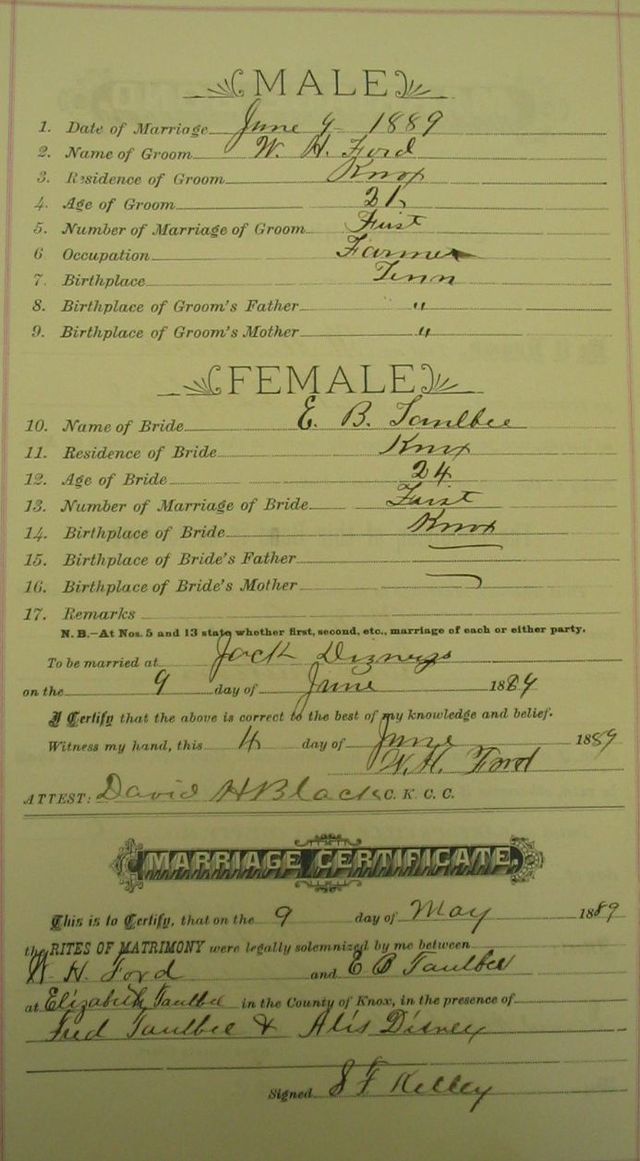 MALE
1. Date of Marriage June 9 1889
2. Name of Groom W. H. Ford
3. Residence of Groom Knox
4. Age of Groom 21
5. Number of Marriage of Groom First
6 Occupation Farmer
7. Birthplace Tenn
8. Birthplace of Groom's Father "
9. Birthplace of Groom's Mother "
FEMALE
10. Name of Bride E. B. Taulbee
11. Residence of Bride Knox
12. Age of Bride 24
13. Number of Marriage of Bride First
14. Birthplace of Bride Knox
15. Birthplace of Bride's Father —
16. Birthplace of Bride's Mother —
17. Remarks
N. B.—At Nos. 5 and 13 state whether first, second, etc., marriage of each or either party.
To be married at Jack Disneys
on the 9 day of June 1889
I Certify that the above is correct to the best of my knowledge and belief.
Witness my hand, this 4 day of June 1889
W. H. Ford
ATTEST: David H Black C. K. C. C.
MARRIAGE CERTIFICATE.
This is to Certify, that on the 9 day of May 1889
the RITES OF MATRIMONY were legally solemnized by me between
W H Ford and E B Taulbee
at Elizabeth Taulbee in the County of Knox, in the presence of
Fred Taulbee & Alis Disney
Signed S F Kelley